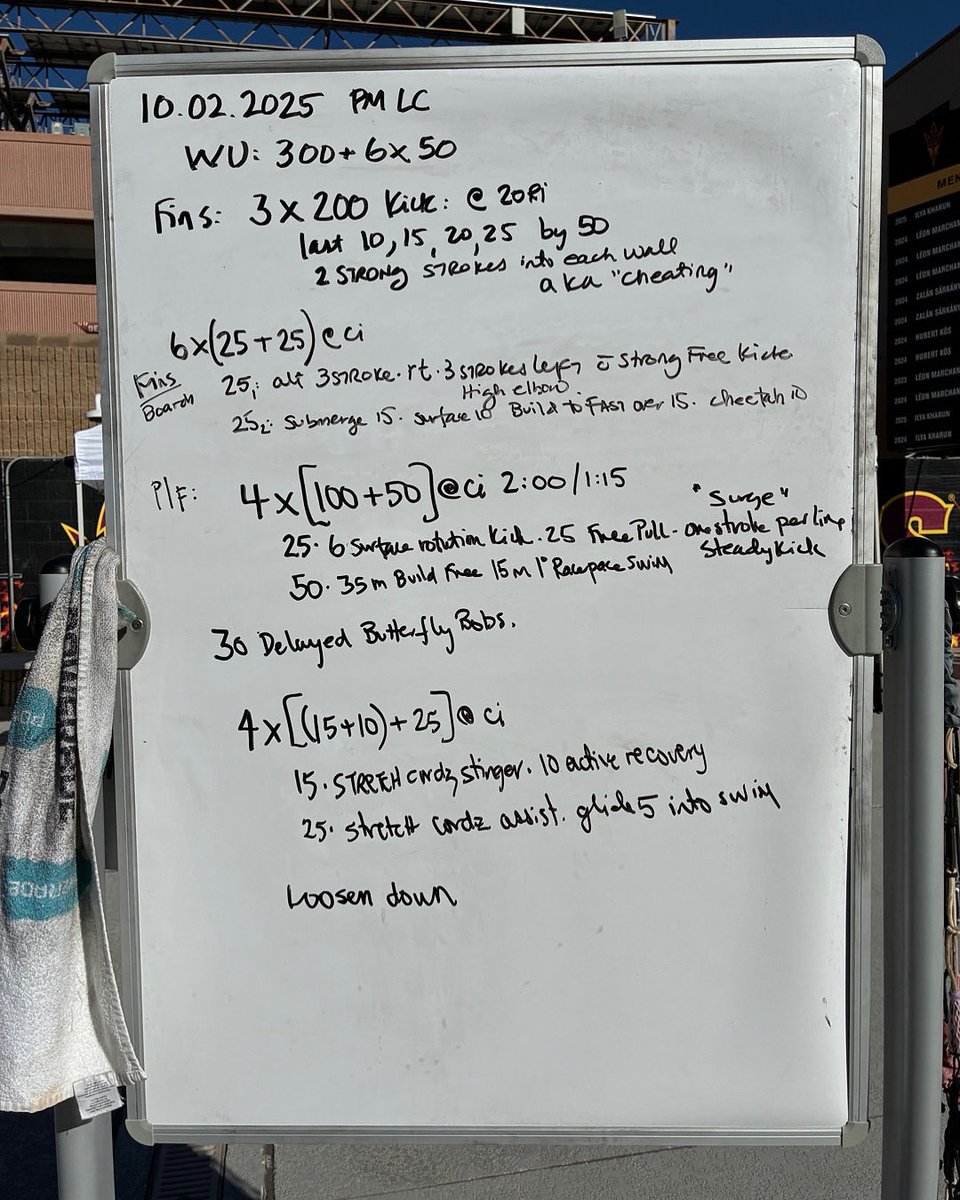 10.02.2025 PM LC
WU: 300+ 6x50
Fins: 3 x 200 Kick: @ 20Ri
last 10, 15, 20, 25 by 50
2 STRONG STROKES into each wall
aka "cheating"
6x(25+25)@ci
Fins
Board
25₁: alt 3STROKE. rt. 3 STROKES left c̄ strong Free Kick
High elbow
25₂: Submerge 15. surface 10 Build to FAST over 15. cheetah 10
P/F: 4x[100+50]@ci 2:00/1:15
"Surge"
25. 6 Surface rotation Kick. 25 Free Pull - one stroke per line
Steady Kick
50. 35m Build Free 15m 1° Racepace Swim
30 Delayed Butterfly Bobs.
4x[(15+10)+25]@ ci
15. STRETCH cordz stinger. 10 active recovery
25. stretch cordz assist. glide 5 into swim
Loosen down
MEN
2025 ILYA KHARUN
2024 LÉON MARCHAN
2024 LÉON MARCHAN
2024 LÉON MARCHAN
2024 ZALÁN SÁRKÁNY
2024 HUBERT KÓS
2024 HUBERT KÓS
2023 LÉON MARCHAN
2024 LÉON MARCHAN
2025 ILYA KHARUN
2024 ILYA KHARUN